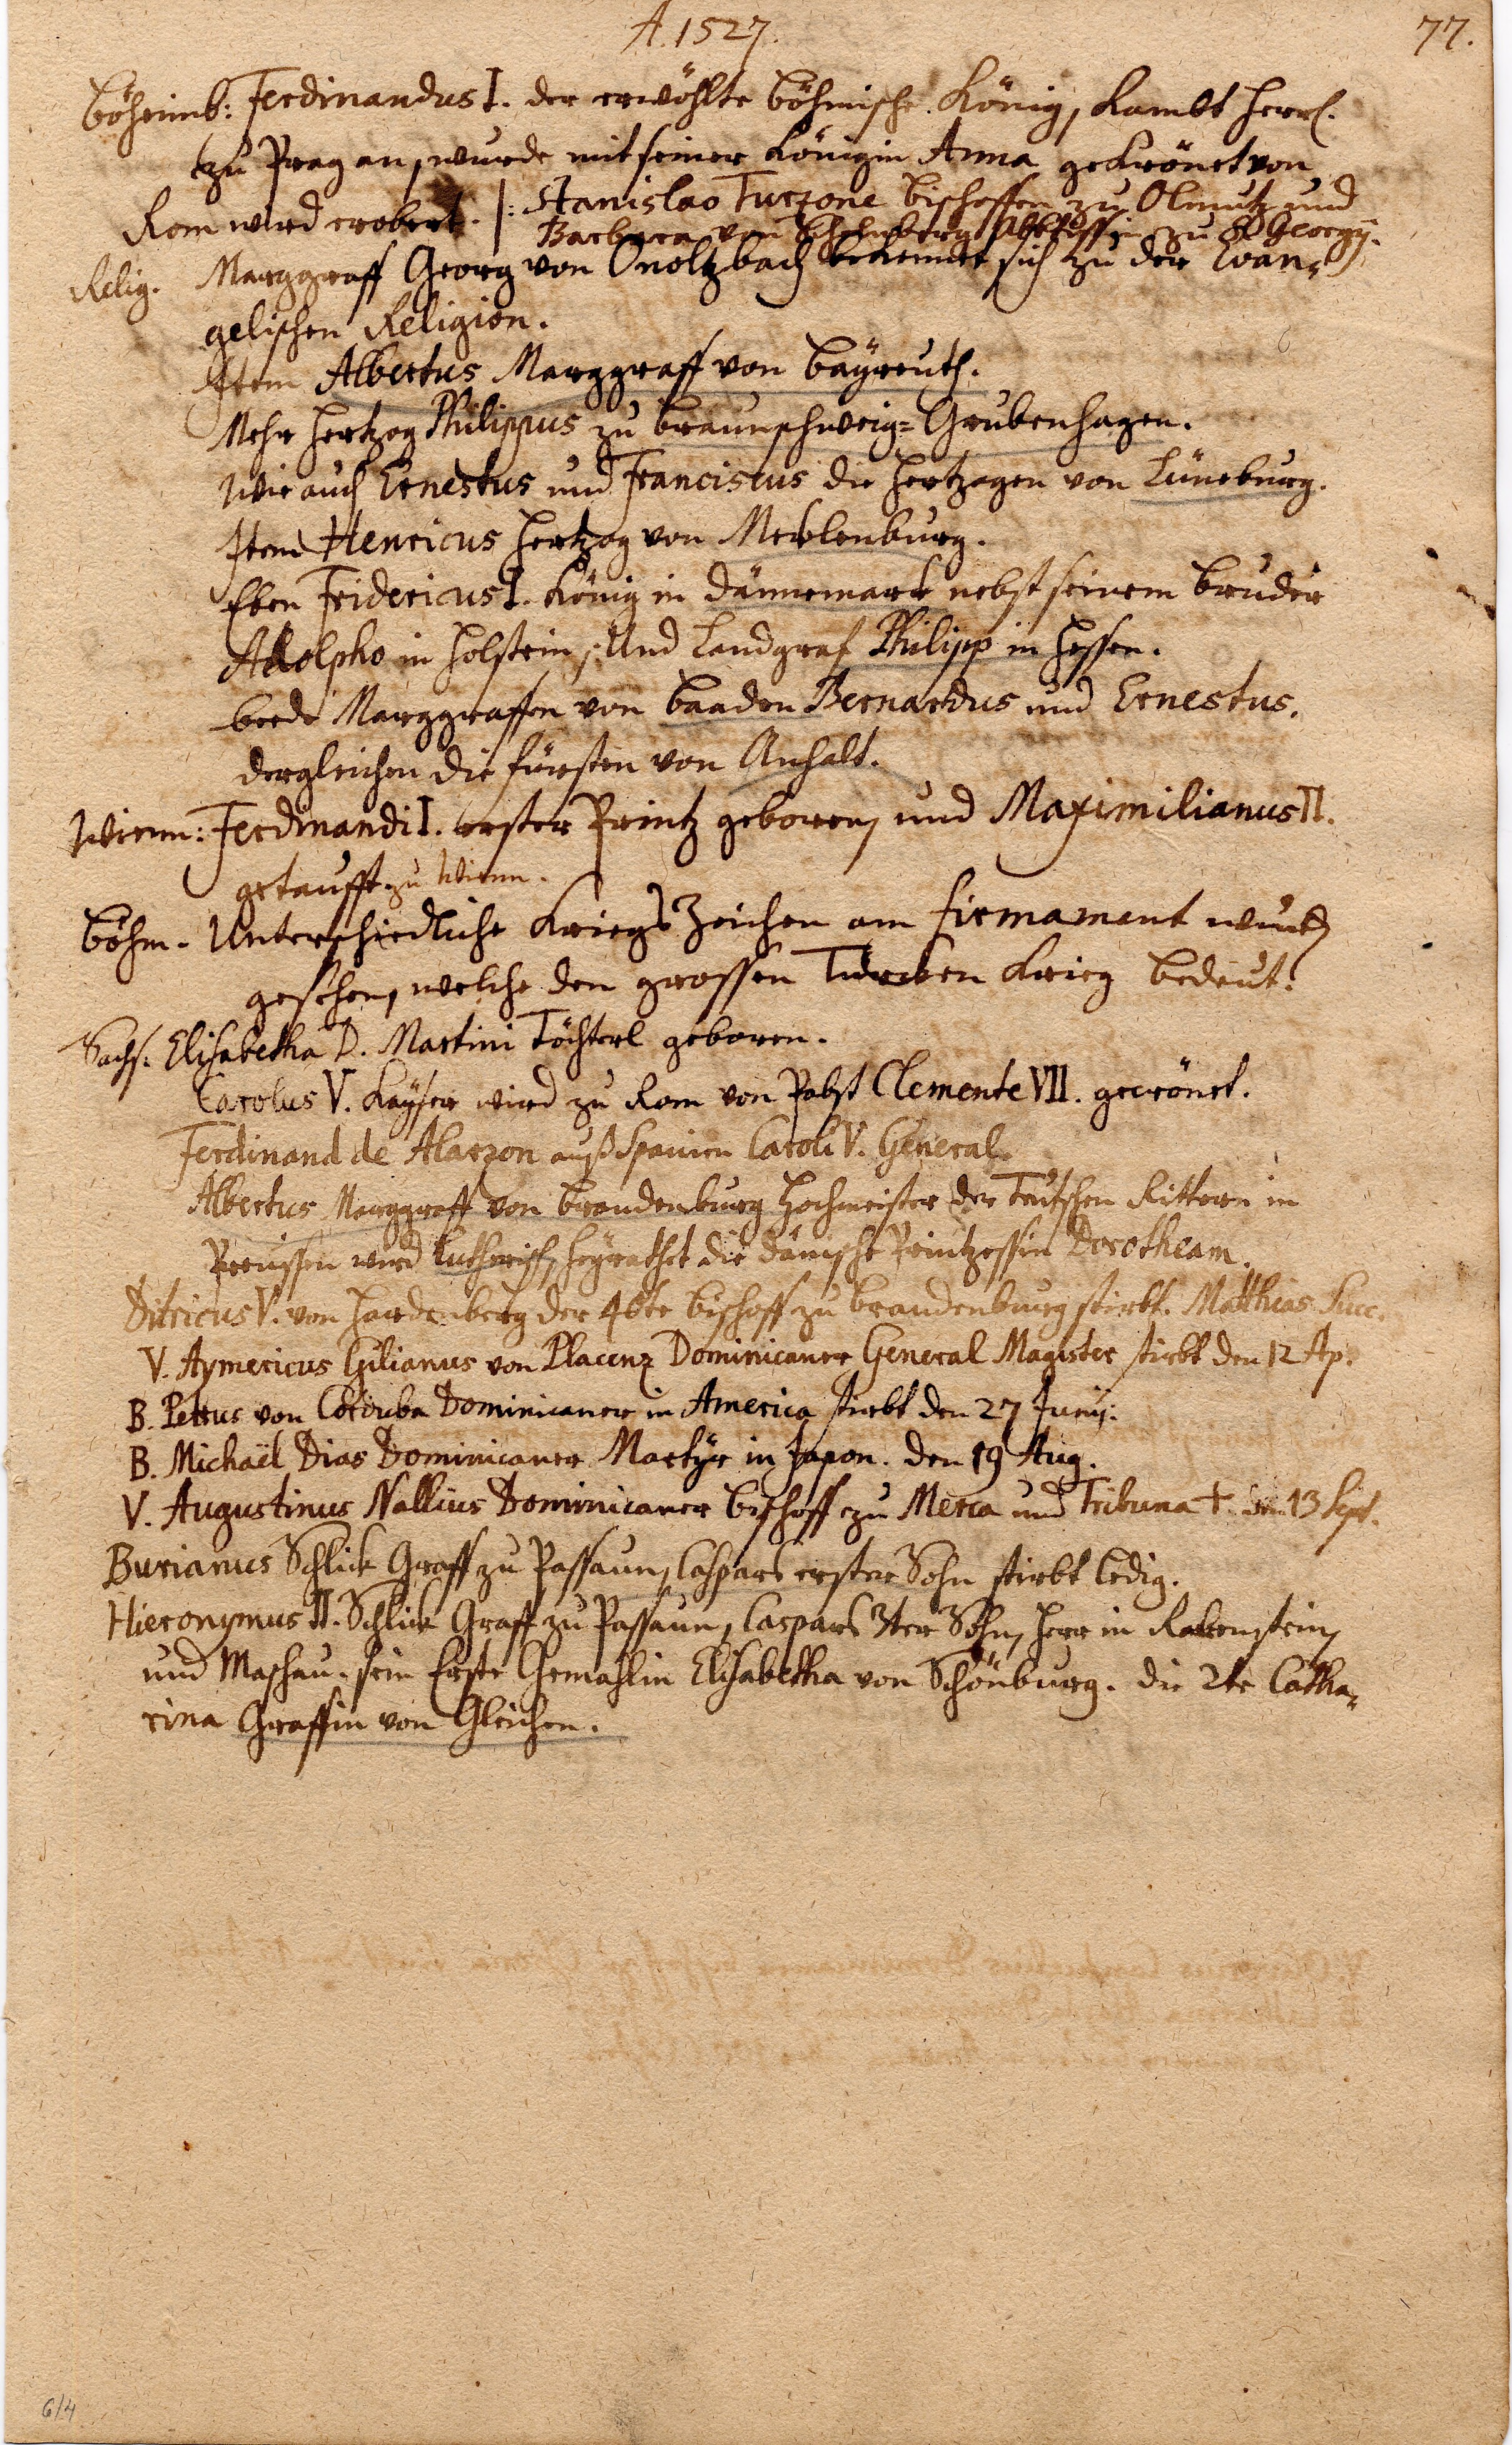 A. 1527.
77.
Böheimb: Ferdinandus I. der erwöhlte Böhmische König, kambt herrl.
zu Prag an, wurde mit seiner Königin Anna gekrönet von
Rom wird erobert. |: Stanislao Turzone Bischoffen zu Olmutz und
Barbara von Abbtissin zu S Georgij.
Relig. Marggraff Georg von Onoltzbach bekennet sich zu der Evan-
gelischen Religion.
Item Albertus Marggraff von Bäyreuth.
Mehr Hertzog Philippus zu Braunschweig-Grubenhagen.
Wie auch Ernestus und Franciscus die Hertzogen von Lüneburg.
Item Henricus Hertzog von Mecklenburg.
Eben Fridericus I. König in Dännemark nebst seinem Bruder
Adolpho in Holstein, Und Landgraf Philipp in Hessen.
beede Marggraffen von Baaden Bernardus und Ernestus.
dergleichen die Fürsten von Anhalt.
Wienn: Ferdinandi I. erster Printz geboren, und Maximilianus II.
getaufft zu Wienn.
Böhm. Unterschiedliche Kriegs Zeichen am Firmament wurd
gesehen, welche den grossen Türcken Krieg bedeut.
Sachs. Elisabetha D. Martini Töchterl geboren.
Carolus V. Kayser wird zu Rom von Pabst Clemente VII. gecrönet.
Ferdinand de Alarzon auß Spanien Caroli V. General.
Albertus Marggraff von Brandenburg Hochmeister der Teutschen Rittern in
Preussen wird Lutherisch, heyrathet die Dänische Printzessin Dorotheam.
Ditricus V. von Hardenberg der 46te Bischoff zu Brandenburg stirbt. Matthias Succ.
V. Aymericus Gilianus von Placenz Dominicaner General Magister stirbt den 12 Ap.
B. Petrus von Corduba Dominicaner in America stirbt den 27 Junij.
B. Michaël Dias Dominicaner Martyr in Japon. den 19 Aug.
V. Augustinus Nallius Dominicaner Bischoff zu Merca und Tribuna † den 13 Sept.
Burianus Schlick Graff zu Passaun, Caspars erster Sohn stirbt ledig.
Hieronymus II. Schlick Graff zu Passaun, Caspars 3ter Sohn, Herr in Rabenstein,
und Maschau. sein Erste Gemahlin Elisabetha von Schönburg. die 2te Catha-
rina Graffin von Gleichen.
6/4